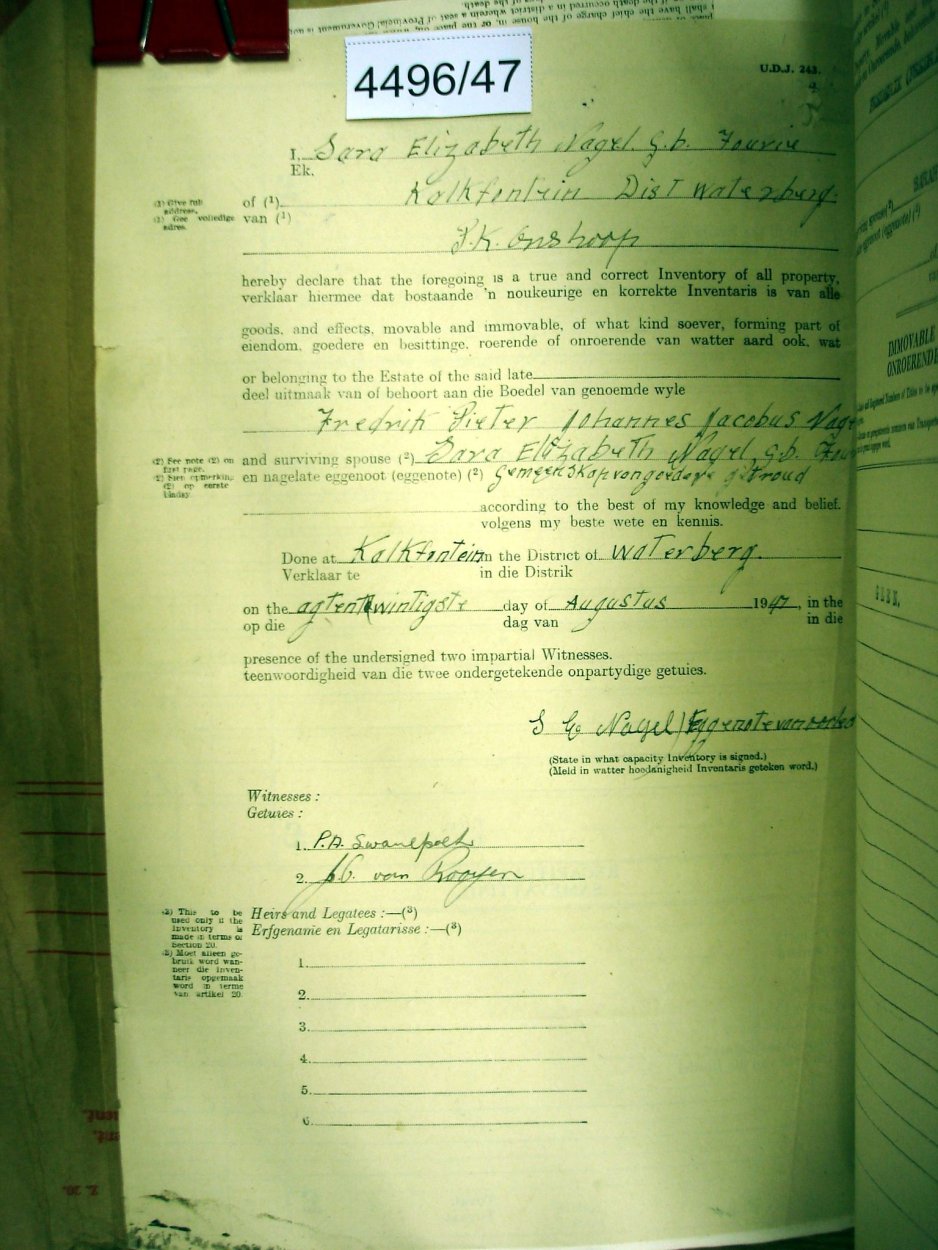 4496/47
U.D.J. 243.
I, Sara Elizabeth Nagel g.b. Fourie
Ek,
(1) Give full address.
(1) Gee volledige adres.
of (1) Kalkfontein Dist Waterberg.
van (1)
P.K. Onshoop
hereby declare that the foregoing is a true and correct Inventory of all property,
verklaar hiermee dat bostaande 'n noukeurige en korrekte Inventaris is van alle
goods, and effects, movable and immovable, of what kind soever, forming part of
eiendom, goedere en besittinge, roerende of onroerende van watter aard ook, wat
or belonging to the Estate of the said late
deel uitmaak van of behoort aan die Boedel van genoemde wyle
Fredrik Pieter Johannes Jacobus
(2) See note (2) on first page.
(2) Sien opmerking (2) op eerste bladsy.
and surviving spouse (2) Sara Elizabeth Nagel g.b.
en nagelate eggenoot (eggenote) (2) Gemeenskap van goedere getroud
according to the best of my knowledge and belief.
volgens my beste wete en kennis.
Done at Kalkfontein in the District of Waterberg.
Verklaar te in die Distrik
on the agtentwintigste day of Augustus 1947, in the
op die dag van in die
presence of the undersigned two impartial Witnesses.
teenwoordigheid van die twee ondergetekende onpartydige getuies.
S E Nagel / Eggenote van
(State in what capacity Inventory is signed.)
(Meld in watter hoedanigheid Inventaris geteken word.)
Witnesses :
Getuies :
1. P.A. Swanepoel
2. van Rooyen
(3) This to be used only if the inventory is made in terms of Section 20.
(3) Moet alleen gebruik word wanneer die inventaris opgemaak word in terme van artikel 20.
Heirs and Legatees :—(3)
Erfgename en Legatarisse :—(3)
1.
2.
3.
4.
5.
6.